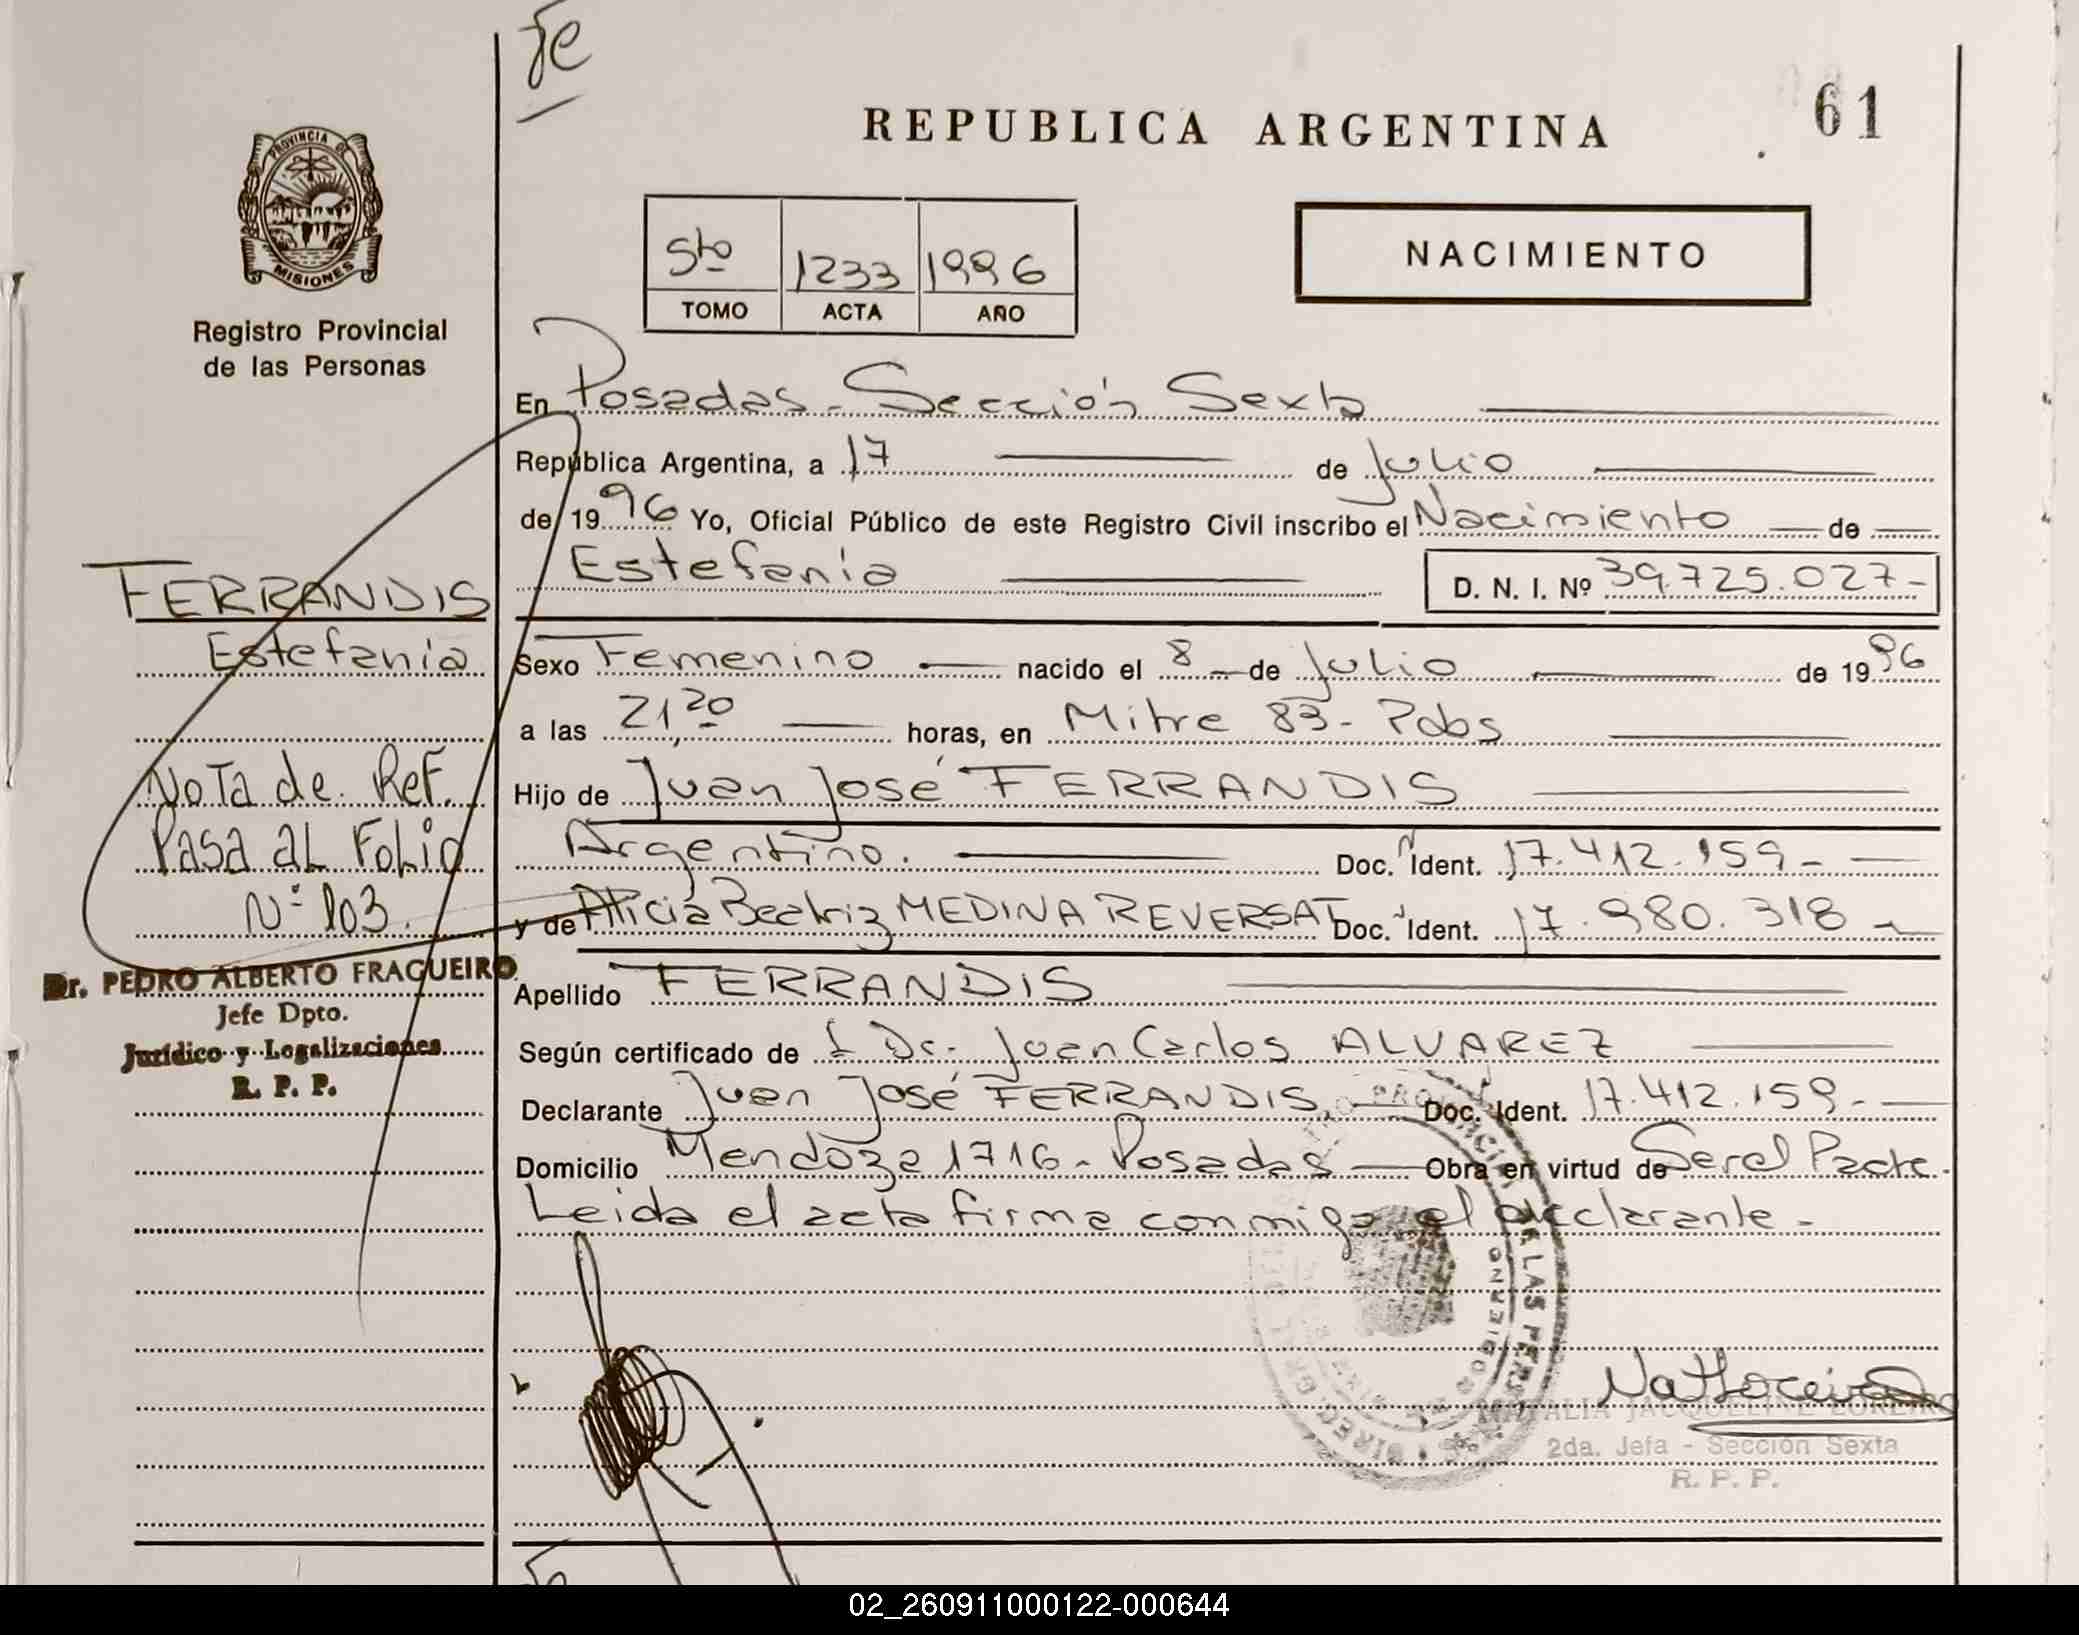 Fe
61
REPUBLICA ARGENTINA
PROVINCIA DE
MISIONES
Registro Provincial
de las Personas
5to 1233 1996
TOMO ACTA AÑO
NACIMIENTO
En Posadas - Sección Sexta
República Argentina, a 17 de Julio
de 1996 Yo, Oficial Público de este Registro Civil inscribo el Nacimiento de
Estefanía D. N. I. Nº 39.725.027-
Sexo Femenino nacido el 8 de Julio de 1996
a las 21,20 horas, en Mitre 83 - Pdas
Hijo de Juan José FERRANDIS
Argentino. Doc. Ident. 17.412.159-
y de Alicia Beatriz MEDINA REVERSAT Doc. Ident. 17.980.318
Apellido FERRANDIS
Según certificado de Dr. Juan Carlos ALVAREZ
Declarante Juan José FERRANDIS Doc. Ident. 17.412.159.-
Domicilio Mendoza 1716 - Posadas Obra en virtud de Ser el Padre.
Leida el acta firma conmigo el declarante -
FERRANDIS
Estefanía
Nota de Ref.
Pasa al Folio
N° 103.
Dr. PEDRO ALBERTO FRAGUEIRO
Jefe Dpto.
Jurídico y Legalizaciones
R. P. P.
NATALIA JACQUELINE LOREIRO
2da. Jefa - Sección Sexta
R. P. P.
02_260911000122-000644